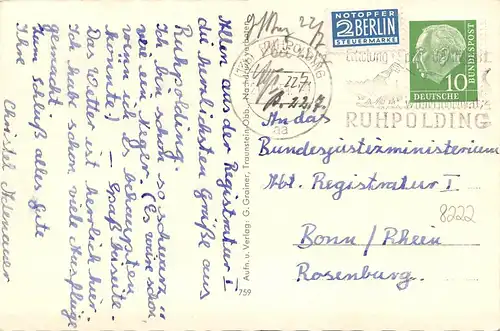 Allen aus der Registratur I
die herzlichsten Grüße aus
Ruhpolding.
Ich bin schon so schwarz
wie ein Neger. (Es wäre schön
wenn ich es behaupten
könnte) — Spaß beiseite
Das Wetter ist herrlich hier.
Ich habe schon viele Ausflüge
gemacht.
Zum Schluß alles Gute
Ihre
Christel
Aufn. u. Verlag: G. Grainer, Traunstein Obb. - Nachdruck verboten
759
NOTOPFER
2 BERLIN
STEUERMARKE
DEUTSCHE
BUNDESPOST
10
RUHPOLDING
RUHPOLDING
An das
Bundesjustizministerium
Abt. Registratur I.
8222
Bonn / Rhein
Rosenburg.